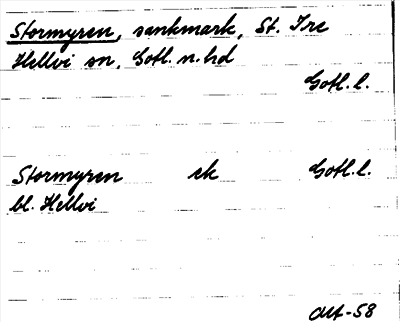 Stormyren, sankmark, St. Ire
Hellvi sn, Gotl. n. hd
Gotl. l.
Stormyren ek Gotl. l.
bl. Hellvi
-58